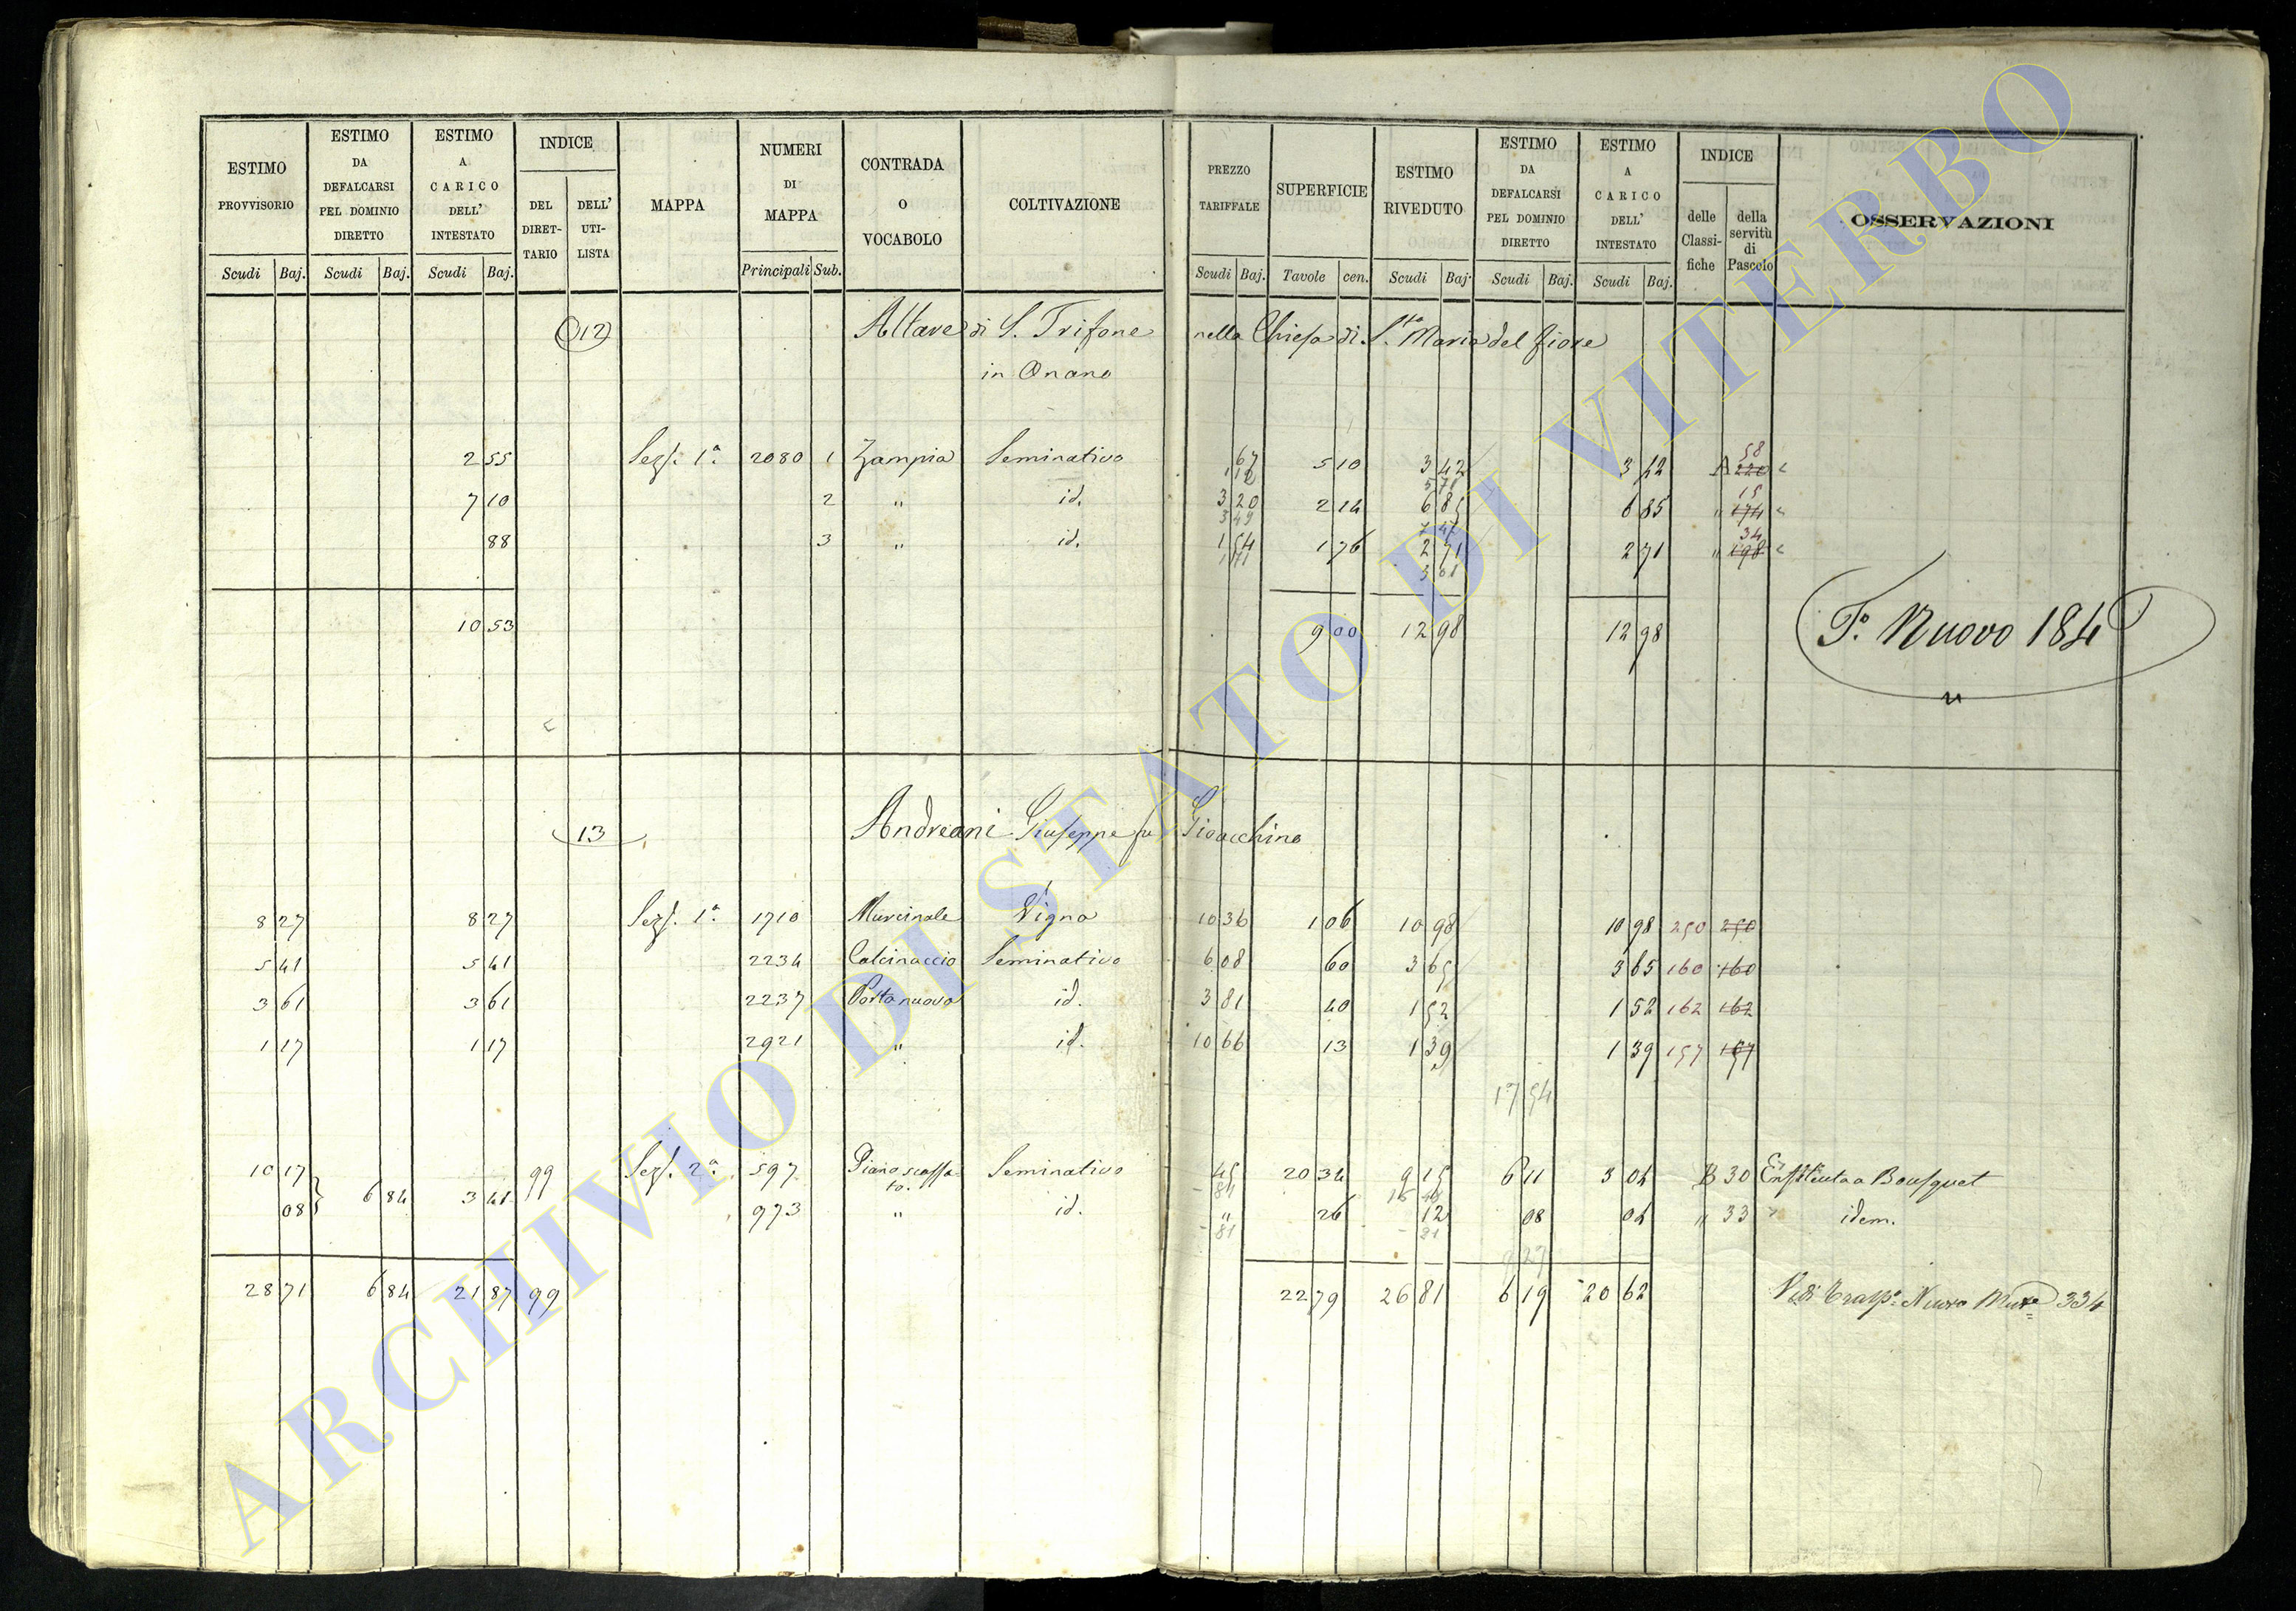 ESTIMO PROVVISORIO Scudi Baj.
ESTIMO DA DEFALCARSI PEL DOMINIO DIRETTO Scudi Baj.
ESTIMO A CARICO DELL' INTESTATO Scudi Baj.
INDICE DEL DIRET- TARIO DELL' UTI- LISTA
MAPPA
NUMERI DI MAPPA Principali Sub.
CONTRADA O VOCABOLO
COLTIVAZIONE
PREZZO TARIFFALE Scudi Baj.
SUPERFICIE Tavole cen.
ESTIMO RIVEDUTO Scudi Baj.
ESTIMO DA DEFALCARSI PEL DOMINIO DIRETTO Scudi Baj.
ESTIMO A CARICO DELL' INTESTATO Scudi Baj.
INDICE delle Classi- fiche della servitù di Pascolo
OSSERVAZIONI
12 Altare di S. Trifone nella Chiesa di S.ta Maria del fiore
in Onano
58
2 55 Sezs. 1.a 2080 1 Zampia Seminativo 67 5 10 3 42 3 42 A 220
1 12 5 71 15
7 10 2 " id. 3 20 2 14 6 85 6 85 " 174
3 49 7 47 34
88 3 " id. 1 54 1 76 2 71 2 71 " 198
1 71 3 01
10 53 9 00 12 98 12 98 F.o Nuovo 184
13 Andreani Giuseppe fu Gioacchino
8 27 8 27 Sezs. 1.a 1710 Murcinale Vigna 10 36 1 06 10 98 10 98 250 250
5 41 5 41 2234 Calcinaccio Seminativo 6 08 60 3 65 3 65 160 160
3 61 3 61 2237 Porta nuova id. 3 81 40 1 52 1 52 162 162
1 17 1 17 2921 " id. 10 66 13 1 39 1 39 157 157
17 54
10 17 99 Sezs. 2.a 597 Piano scassa- Seminativo 45 20 34 9 15 6 11 3 04 B 30 Enfiteuta a Bousquet
to.
6 84 3 41
08 973 " id. " 26 12 08 04 " 33 idem.
81 21
28 71 6 84 21 87 99 22 79 26 81 6 19 20 62 Vedi Trasp.o Nuovo 334
ARCHIVIO DI STATO DI VITERBO